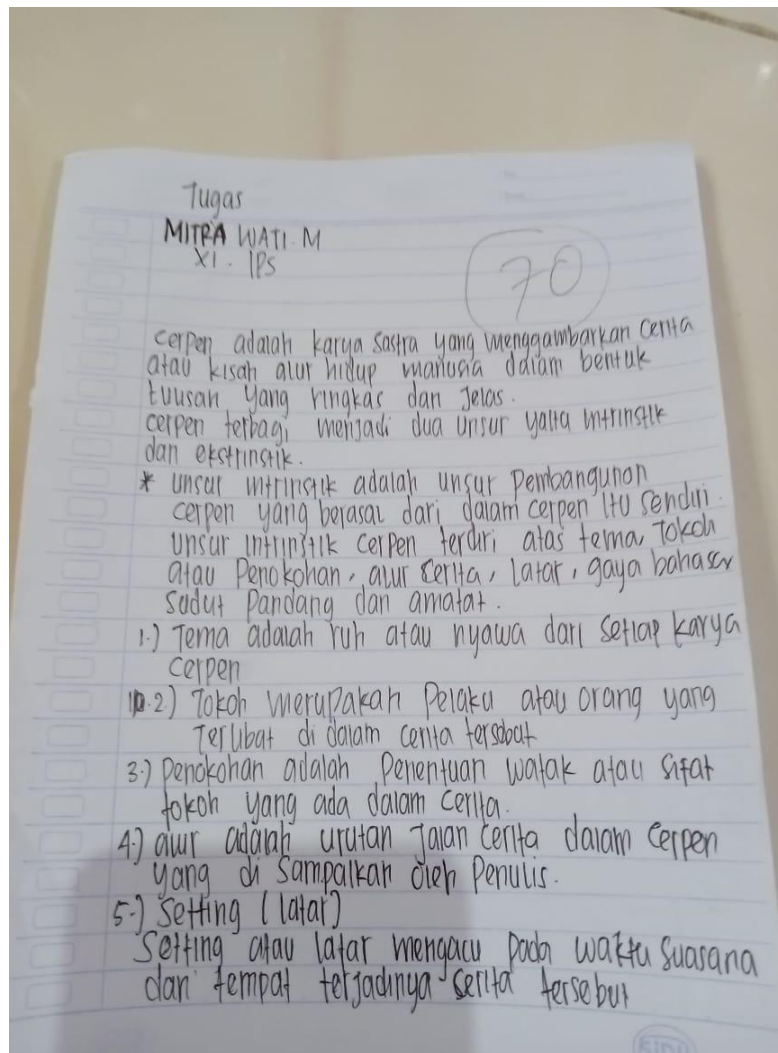 Tugas
MITRA WATI. M
XI. IPS
70
cerpen adalah karya sastra yang menggambarkan cerita
atau kisah alur hidup manusia dalam bentuk
tuusan yang ringkas dan Jelas.
cerpen terbagi menjadi dua unsur yaita intrinstik
dan ekstrinstik.
* unsur intrinstik adalah unsur Pembangunon
cerpen yang berasal dari dalam cerpen itu sendiri.
unsur intrinstik cerpen terdiri atas tema, Tokoh
atau Penokohan, alur cerita, latar, gaya bahasa
sudut Pandang dan amatat.
1.) Tema adalah ruh atau nyawa dari setiap karya
cerpen
2.) Tokoh merupakan Pelaku atau orang yang
Terlibat di dalam cerita tersebut
3.) Penokohan adalah Penentuan watak atau sifat
tokoh yang ada dalam cerita.
4.) alur adalah urutan Jalan cerita dalam cerpen
yang di sampaikan oleh Penulis.
5.) Setting (latar)
Setting atau latar mengacu pada waktu suasana
dan tempat terjadinya serita tersebut